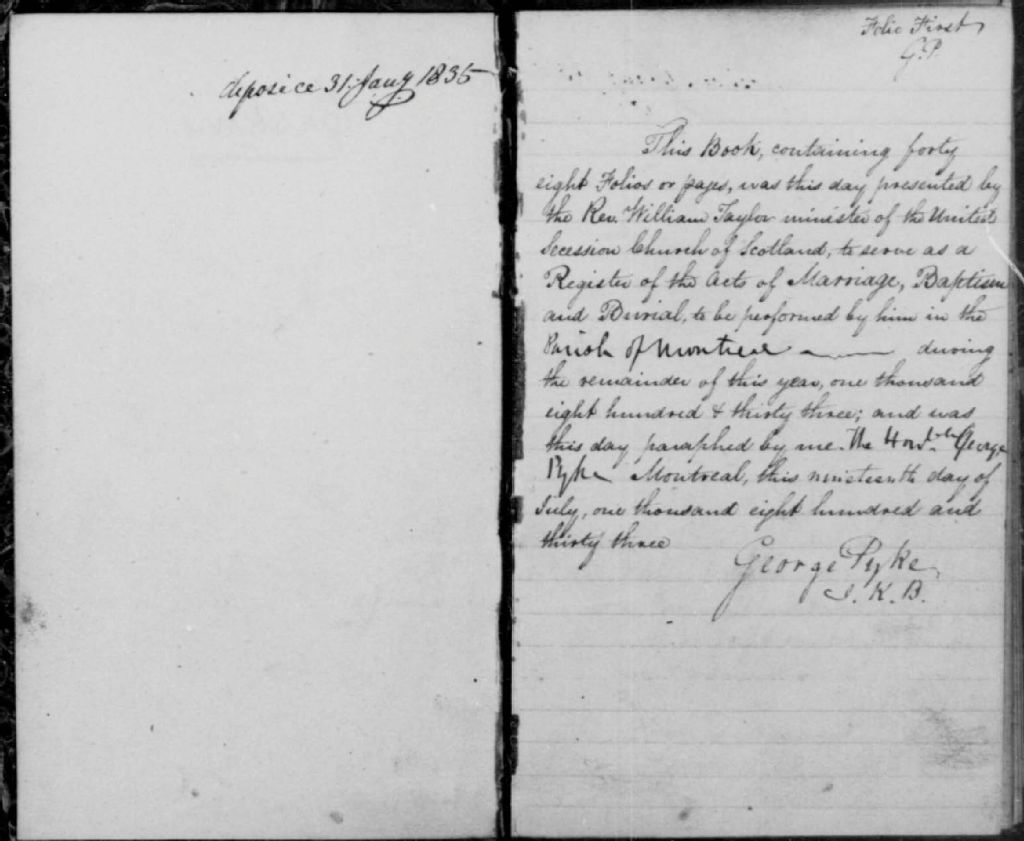 deposice 31 Jany 1835
Folio First
G.P.
This Book, containing forty
eight Folios or pages, was this day presented by
the Rev. William Taylor minister of the United
Secession Church of Scotland, to serve as a
Register of the Acts of Marriage, Baptism
and Burial, to be performed by him in the
Parish of Montreal during
the remainder of this year, one thousand
eight hundred & thirty three; and was
this day paraphed by me. The Honble George
Pyke Montreal, this nineteenth day of
July, one thousand eight hundred and
thirty three
George Pyke
J. K. B.